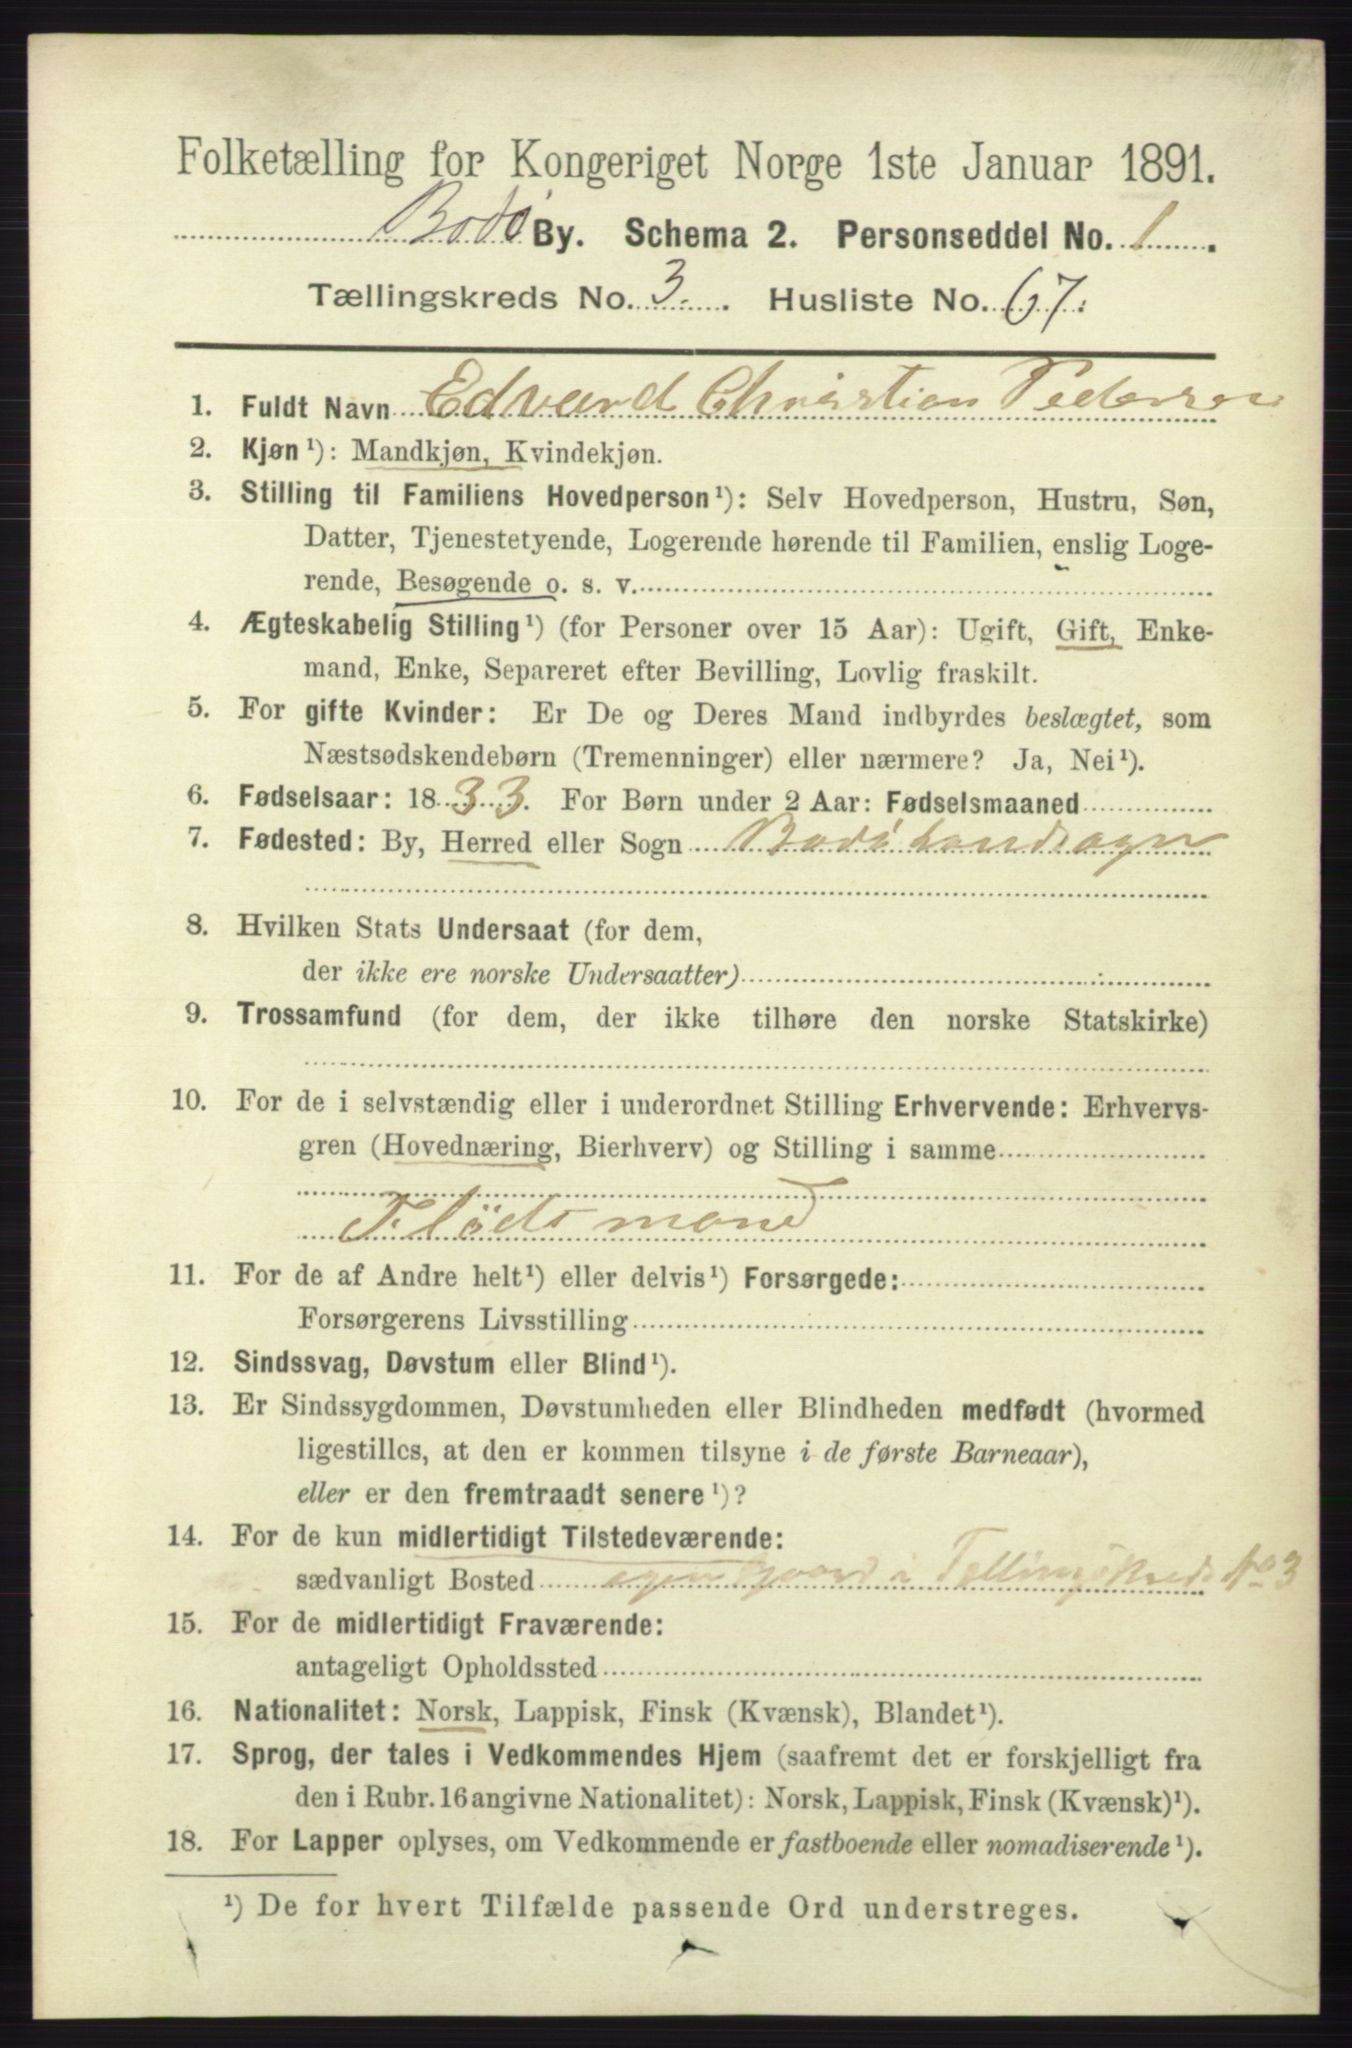 Folketælling for Kongeriget Norge 1ste Januar 1891.
Bodø By. Schema 2. Personseddel No. 1.
Tællingskreds No. 3. Husliste No. 67.
1. Fuldt Navn Edvard Christian Pedersen
2. Kjøn¹): Mandkjøn, Kvindekjøn.
3. Stilling til Familiens Hovedperson¹): Selv Hovedperson, Hustru, Søn,
Datter, Tjenestetyende, Logerende hørende til Familien, enslig Loge-
rende, Besøgende o. s. v.
4. Ægteskabelig Stilling¹) (for Personer over 15 Aar): Ugift, Gift, Enke-
mand, Enke, Separeret efter Bevilling, Lovlig fraskilt.
5. For gifte Kvinder: Er De og Deres Mand indbyrdes beslægtet, som
Næstsødskendebørn (Tremenninger) eller nærmere? Ja, Nei¹).
6. Fødselsaar: 1833. For Børn under 2 Aar: Fødselsmaaned
7. Fødested: By, Herred eller Sogn Bodø Landsogn
8. Hvilken Stats Undersaat (for dem,
der ikke ere norske Undersaatter)
9. Trossamfund (for dem, der ikke tilhøre den norske Statskirke)
10. For de i selvstændig eller i underordnet Stilling Erhvervende: Erhvervs-
gren (Hovednæring, Bierhverv) og Stilling i samme
mand
11. For de af Andre helt¹) eller delvis¹) Forsørgede:
Forsørgerens Livsstilling
12. Sindssvag, Døvstum eller Blind¹).
13. Er Sindssygdommen, Døvstumheden eller Blindheden medfødt (hvormed
ligestilles, at den er kommen tilsyne i de første Barneaar),
eller er den fremtraadt senere¹)?
14. For de kun midlertidigt Tilstedeværende:
sædvanligt Bosted egen Gaard i Tællingskreds No 3
15. For de midlertidigt Fraværende:
antageligt Opholdssted
16. Nationalitet: Norsk, Lappisk, Finsk (Kvænsk), Blandet¹).
17. Sprog, der tales i Vedkommendes Hjem (saafremt det er forskjelligt fra
den i Rubr. 16 angivne Nationalitet): Norsk, Lappisk, Finsk (Kvænsk)¹).
18. For Lapper oplyses, om Vedkommende er fastboende eller nomadiserende¹).
¹) De for hvert Tilfælde passende Ord understreges.